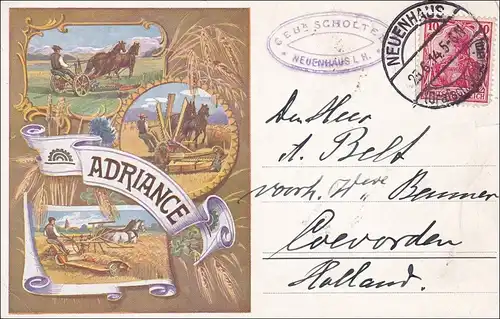 ADRIANCE
GEBR. SCHOLTEN
NEUENHAUS I. H.
NEUENHAUS
10
Den Heer
A. Belt
voorh. Wwe Benner
Coevorden
Holland.